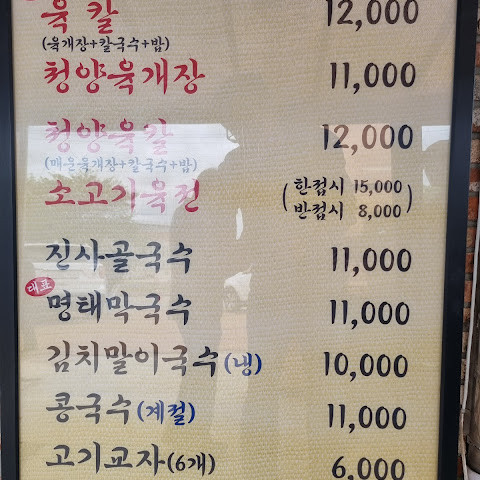 육 칼 12,000
(육개장+칼국수+밥)
청양육개장 11,000
청양육칼 12,000
(매운육개장+칼국수+밥)
소고기육전 (한접시 15,000
반접시 8,000)
진사골국수 11,000
대표
명태막국수 11,000
김치말이국수(냉) 10,000
콩국수(계절) 11,000
고기교자(6개) 6,000